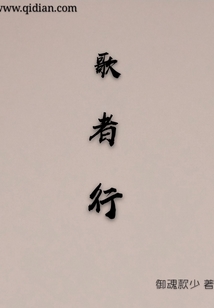 www.qidian.com
歌
者
行
御魂款少 著